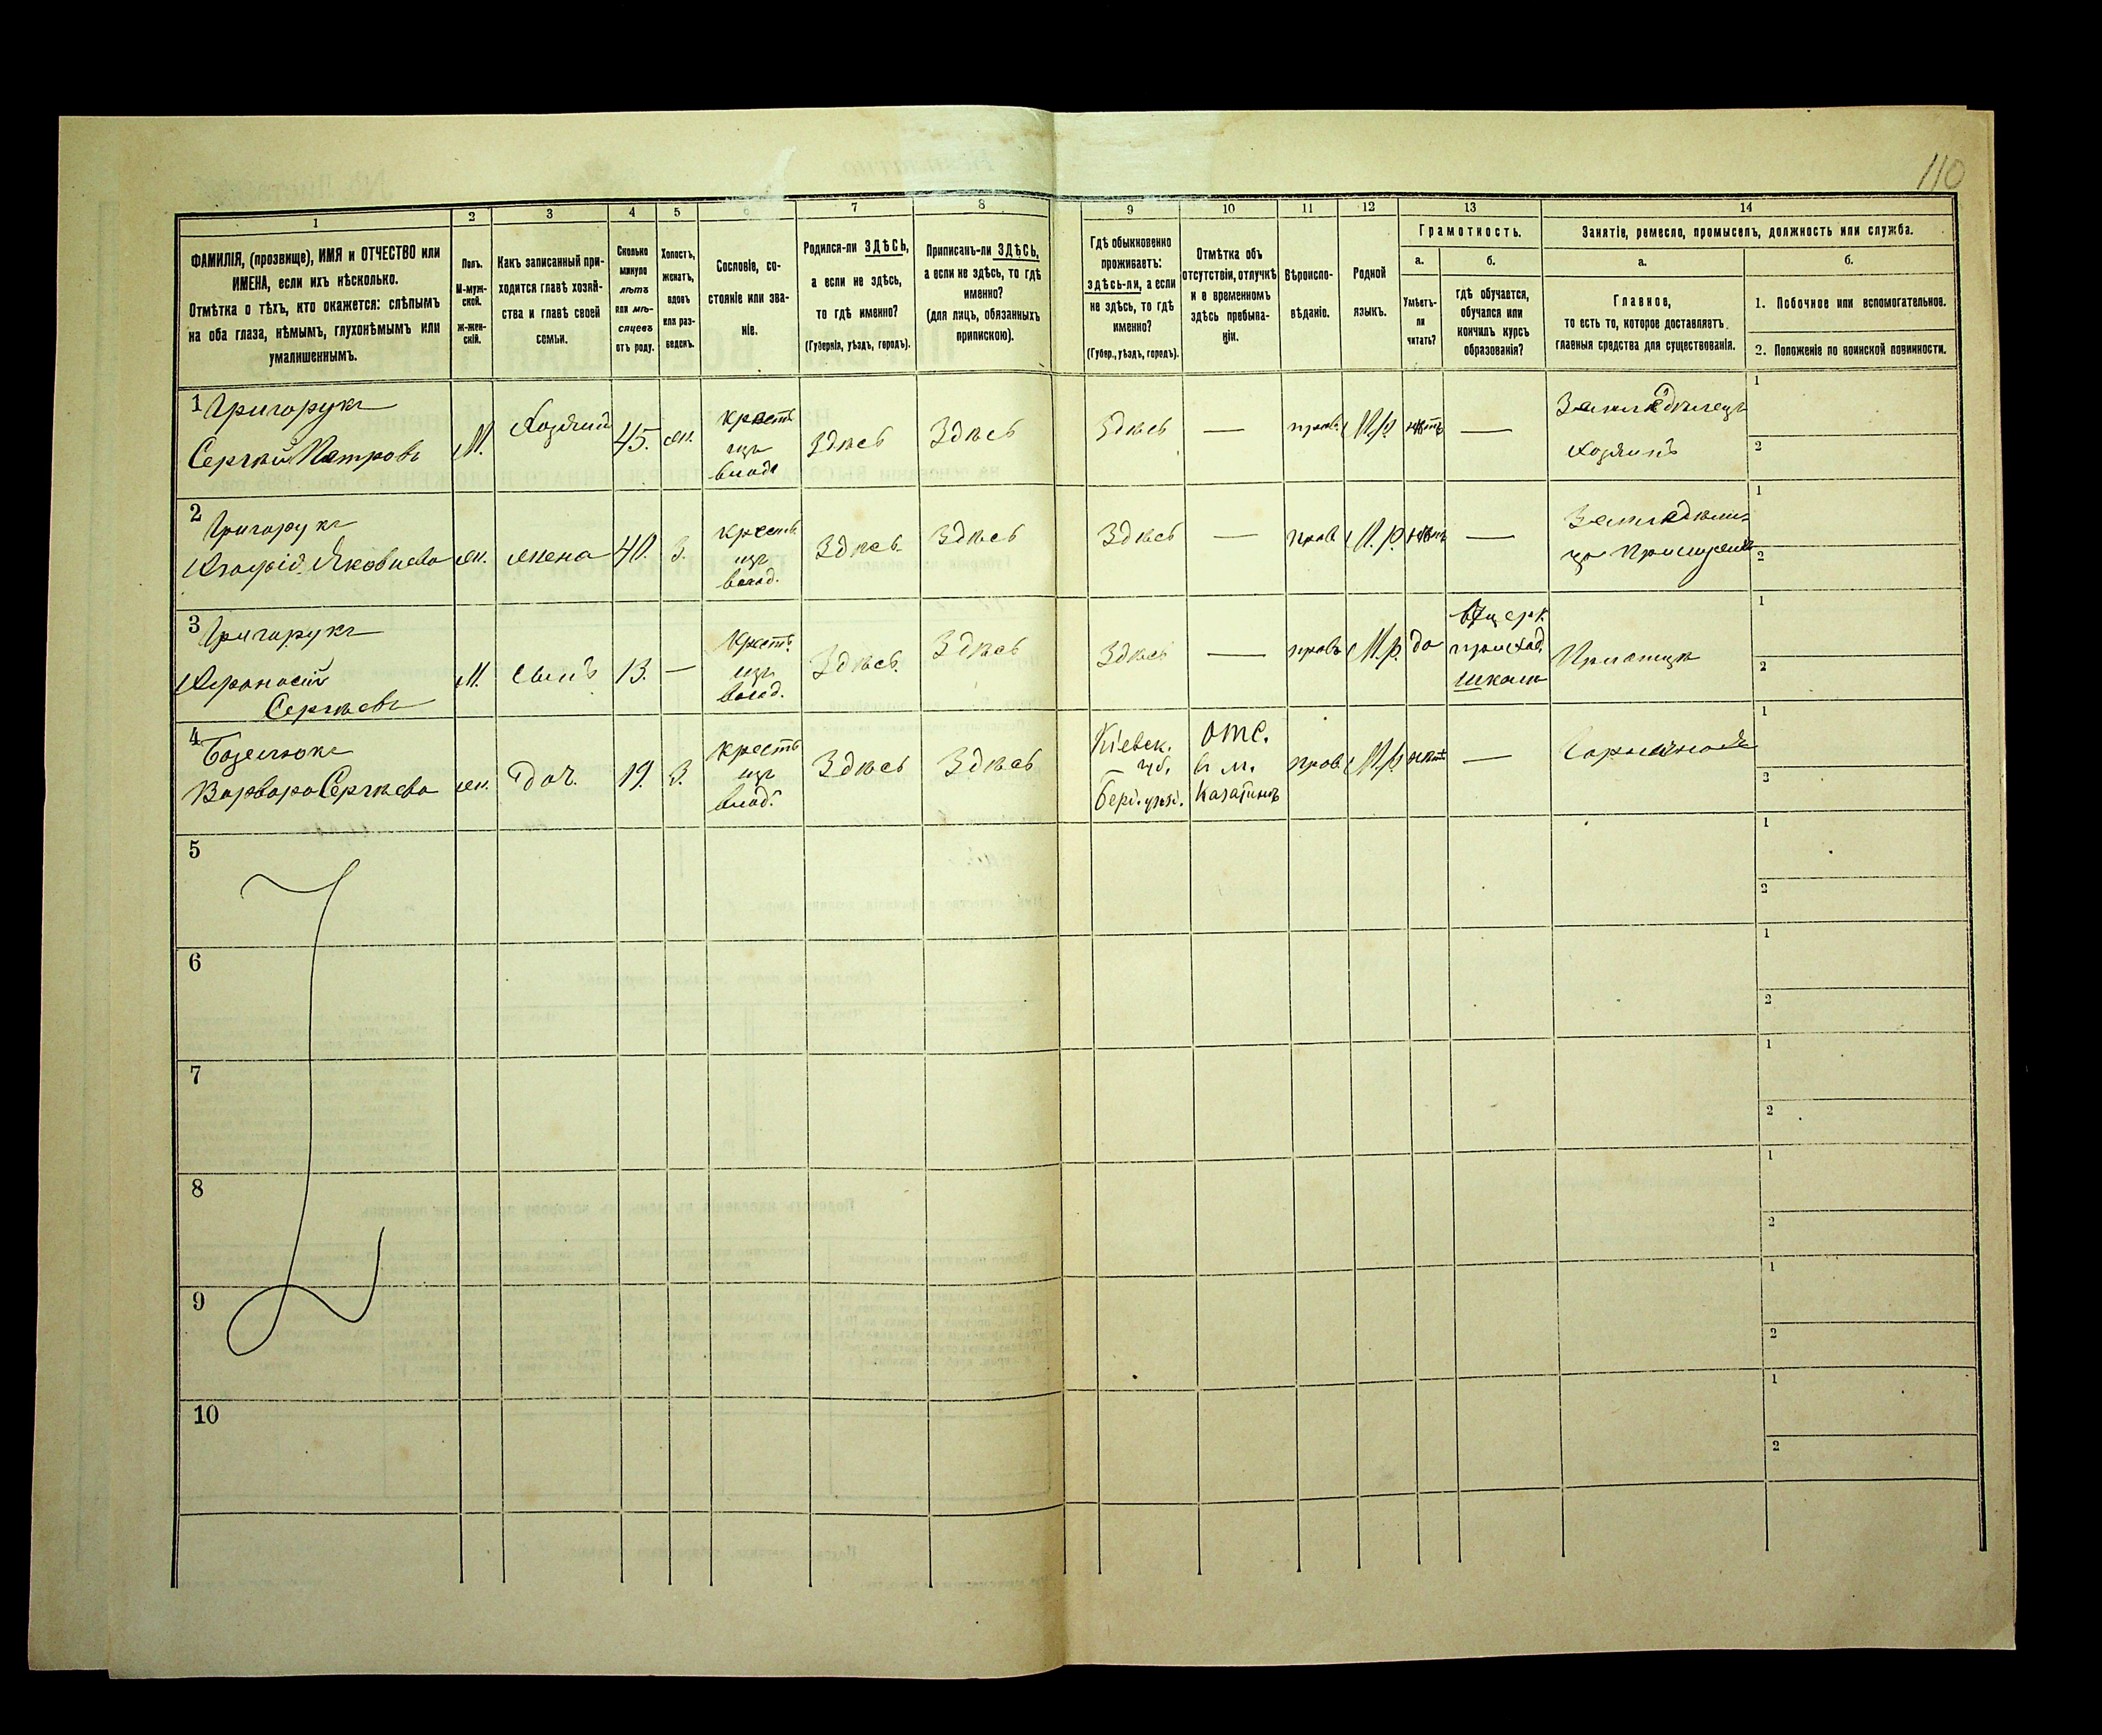 110
1
2
3
4
5
6
7
8
9
10
11
12
13
14
ФАМИЛІЯ, (прозвище), ИМЯ и ОТЧЕСТВО или
ИМЕНА, если ихъ нѣсколько.
Отмѣтка о тѣхъ, кто окажется: слѣпымъ
на оба глаза, нѣмымъ, глухонѣмымъ или
умалишеннымъ.
Полъ.
М-муж-
ской.
Ж-жен-
скій.
Какъ записанный при-
ходится главѣ хозяй-
ства и главѣ своей
семьи.
Сколько
минуло
лѣтъ
или мѣ-
сяцевъ
отъ роду.
Холостъ,
женатъ,
вдовъ
или раз-
веденъ.
Сословіе, со-
стояніе или зва-
ніе.
Родился-ли ЗДѢСЬ,
а если не здѣсь,
то гдѣ именно?
(Губернія, уѣздъ, городъ).
Приписанъ-ли ЗДѢСЬ,
а если не здѣсь, то гдѣ
именно?
(для лицъ, обязанныхъ
припискою).
Гдѣ обыкновенно
проживаетъ:
здѣсь-ли, а если
не здѣсь, то гдѣ
именно?
(Губер., уѣздъ, городъ).
Отмѣтка объ
отсутствіи, отлучкѣ
и о временномъ
здѣсь пребыва-
ніи.
Вѣроиспо-
вѣданіе.
Родной
языкъ.
Грамотность.
а.
Умѣетъ-
ли
читать?
б.
гдѣ обучается,
обучался или
кончилъ курсъ
образованія?
Занятіе, ремесло, промыселъ, должность или служба.
а.
Главное,
то есть то, которое доставляетъ
главныя средства для существованія.
б.
1. Побочное или вспомогательное.
2. Положеніе по воинской повинности.
1 Григорукъ
Сергѣй Петровъ
М.
Хозяинъ
45.
жн.
крестъ
изъ
влад.
Здѣсь
Здѣсь
Здѣсь
—
прав.
М.р.
нѣтъ
—
Земледѣлецъ
хозяинъ
1
2
2
Григорукъ
Яковлева
жн.
жена
40.
З.
крестъ
изъ
влад.
Здѣсь
Здѣсь
Здѣсь
—
прав
М.р.
нѣтъ
—
1
2
3 Григорукъ
Афанасій
Сергѣевъ
М.
сынъ
13.
—
крестъ
изъ
влад.
Здѣсь
Здѣсь
Здѣсь
—
правъ
М.р.
да
въ церк.
приход.
школѣ
1
2
4
Варвара Сергѣева
жн.
доч.
19.
З.
крестъ
изъ
влад.
Здѣсь
Здѣсь
Кіевск.
губ.
Берд. уѣзд.
отс.
въ м.
Казатинъ
прав
М.р.
нѣтъ
—
1
2
5
1
2
6
1
2
7
1
2
8
1
2
9
1
2
10
1
2